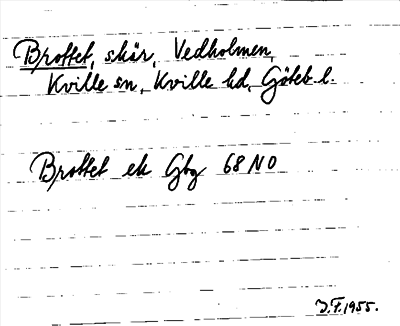 Brottet, skär, Vedholmen,
Kville sn, Kville hd, Göteb l.
Brottet ek Gbg 68 NO
J.F. 1955.